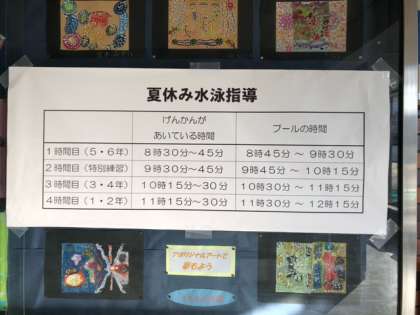 夏休み水泳指導
げんかんが
あいている時間 プールの時間
1時間目(5・6年) 8時30分～45分 8時45分 ～ 9時30分
2時間目(特別練習) 9時30分～45分 9時45分 ～ 10時15分
3時間目(3・4年) 10時15分～30分 10時30分 ～ 11時15分
4時間目(1・2年) 11時15分～30分 11時30分 ～ 12時15分
アボリジナルアートで
夢もよう